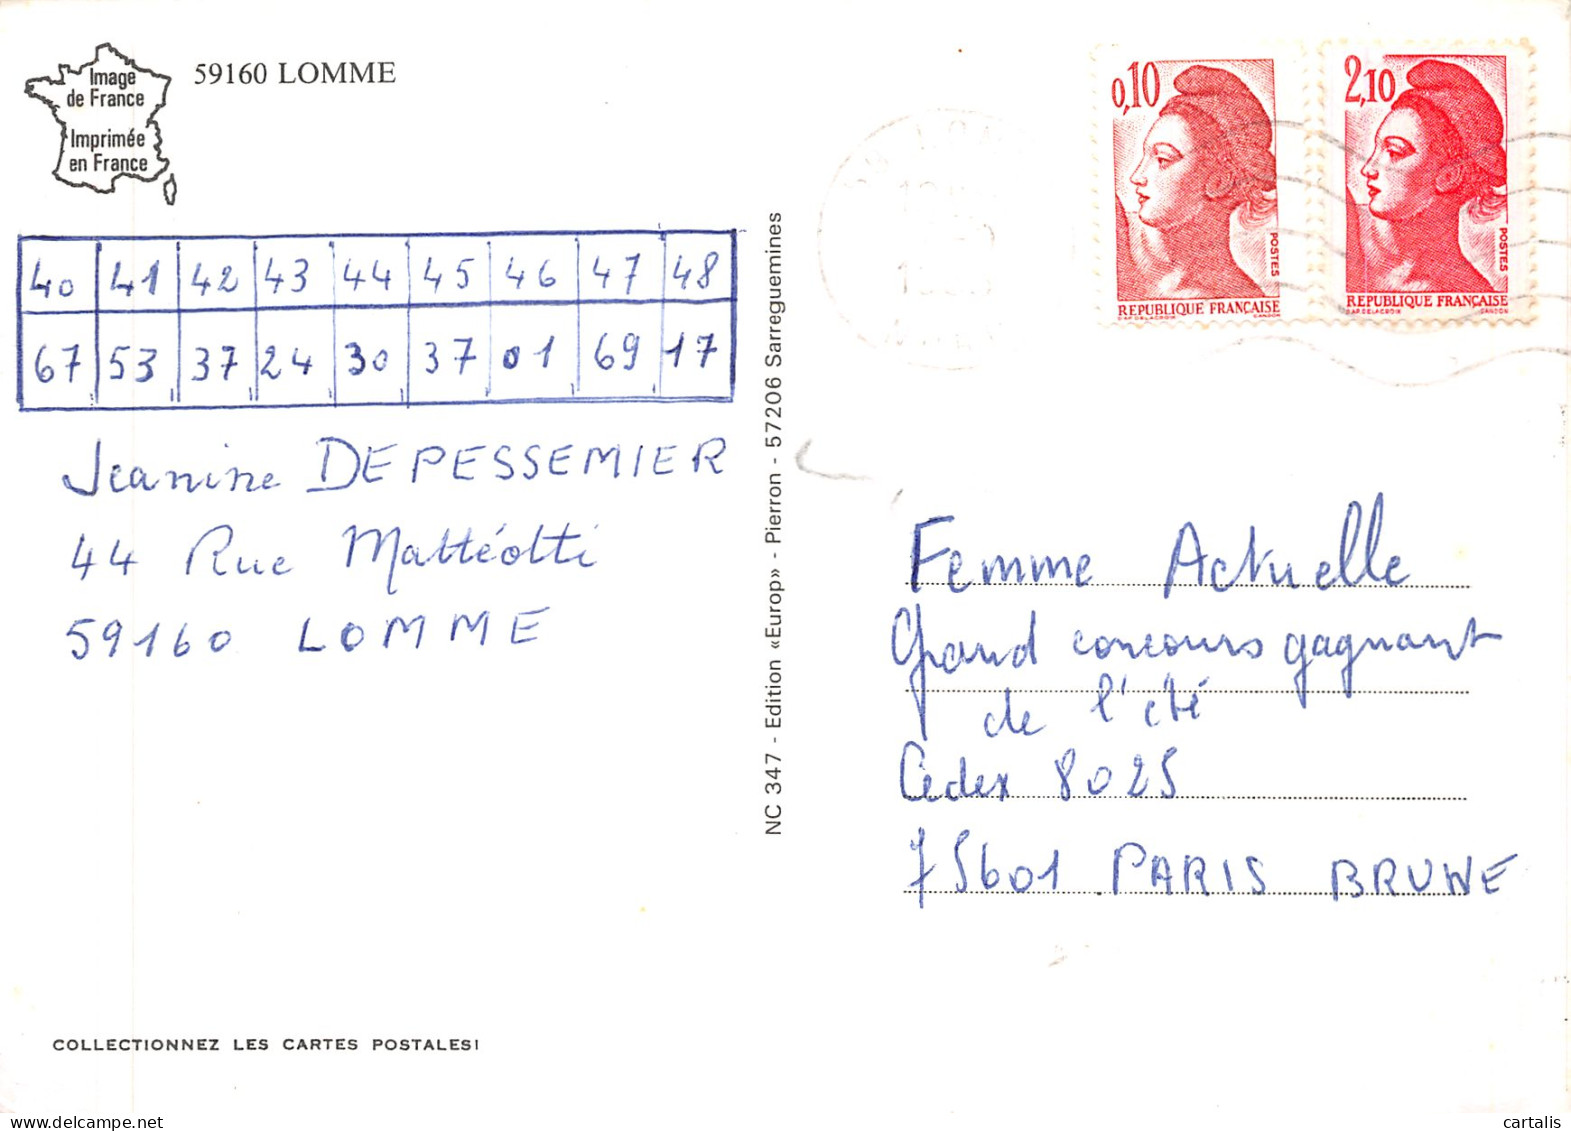 Image
de France
Imprimée
en France
59160 LOMME
40 41 42 43 44 45 46 47 48
67 53 37 24 30 37 01 69 17
Jeanine DEPESSEMIER
44 Rue Mattéotti
59160 LOMME
COLLECTIONNEZ LES CARTES POSTALES!
NC 347 - Edition «Europ» - Pierron - 57206 Sarreguemines
0,10
POSTES
REPUBLIQUE FRANÇAISE
D'AP. DELACROIX GANDON
2,10
POSTES
REPUBLIQUE FRANÇAISE
D'AP. DELACROIX GANDON
Femme Actuelle
Grand concours gagnant
de l'été
Cedex 8025
75601 PARIS BRUNE
cartalis
delcampe.net